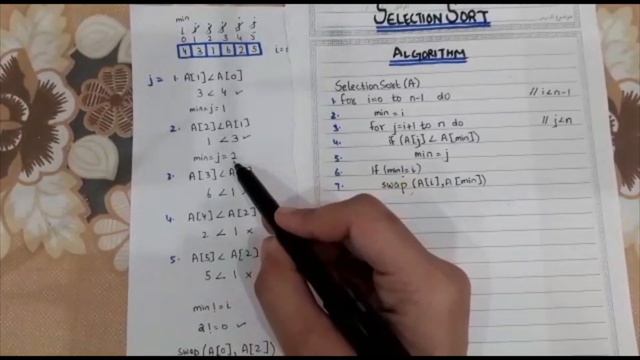 min
i j j j j j
0 1 2 3 4 5
4 3 1 6 2 5
j = 1. A[1] < A[0]
3 < 4 ✓
min = j = 1
2. A[2] < A[1]
1 < 3 ✓
min = j = 2
3. A[3] < A
6 < 1
4. A[4] < A[2]
2 < 1 ×
5. A[5] < A[2]
5 < 1 ×
min != i
2 != 0 ✓
swap (A[0], A[2])
SELECTION SORT
ALGORITHM
SelectionSort (A)
1. for i=0 to n-1 do // i<n-1
2. min = i
3. for j=i+1 to n do // j<n
4. if (A[j] < A[min])
5. min = j
6. if (min != i)
7. swap (A[i], A[min])